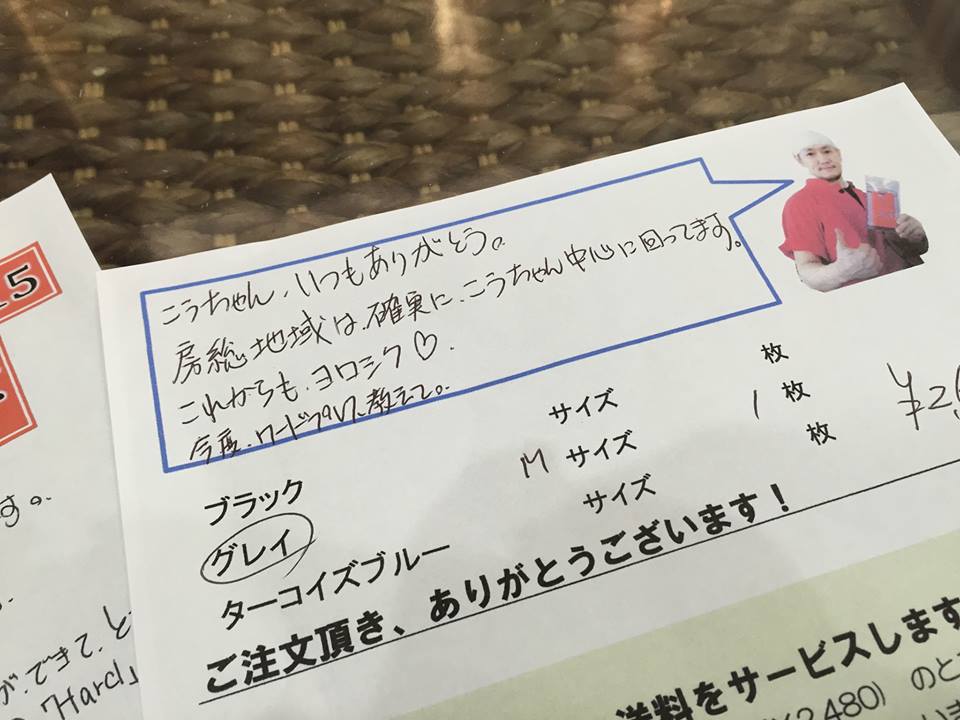 こうちゃん、いつもありがとう。
房総地域は、確実に、こうちゃん中心に回ってます。
これからも、ヨロシク♡.
今度、ワードプレス教えて。
枚
サイズ
1 枚
M サイズ
枚
サイズ
¥2
ブラック
グレイ
ターコイズブルー
ご注文頂き、ありがとうございます!
送料をサービスします
2,480) のと
15
す。
が、できて、と
Hard」